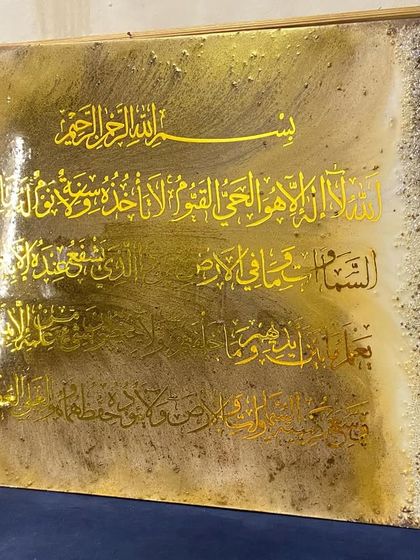 بِسْمِ اللهِ الرَّحْمٰنِ الرَّحِيْمِ
اللهُ لَا إِلٰهَ إِلَّا هُوَ الْحَيُّ الْقَيُّومُ لَا تَأْخُذُهُ سِنَةٌ وَلَا نَوْمٌ
السَّمَاوَاتِ وَمَا فِي الْأَرْضِ الَّذِي يَشْفَعُ عِنْدَهُ إِلَّا
يَعْلَمُ مَا بَيْنَ أَيْدِيهِمْ وَمَا خَلْفَهُمْ وَلَا مِنْ عِلْمِهِ إِلَّا
وَسِعَ كُرْسِيُّهُ السَّمَاوَاتِ وَالْأَرْضَ وَلَا يَئُودُهُ حِفْظُهُمَا وَهُوَ الْعَلِيُّ